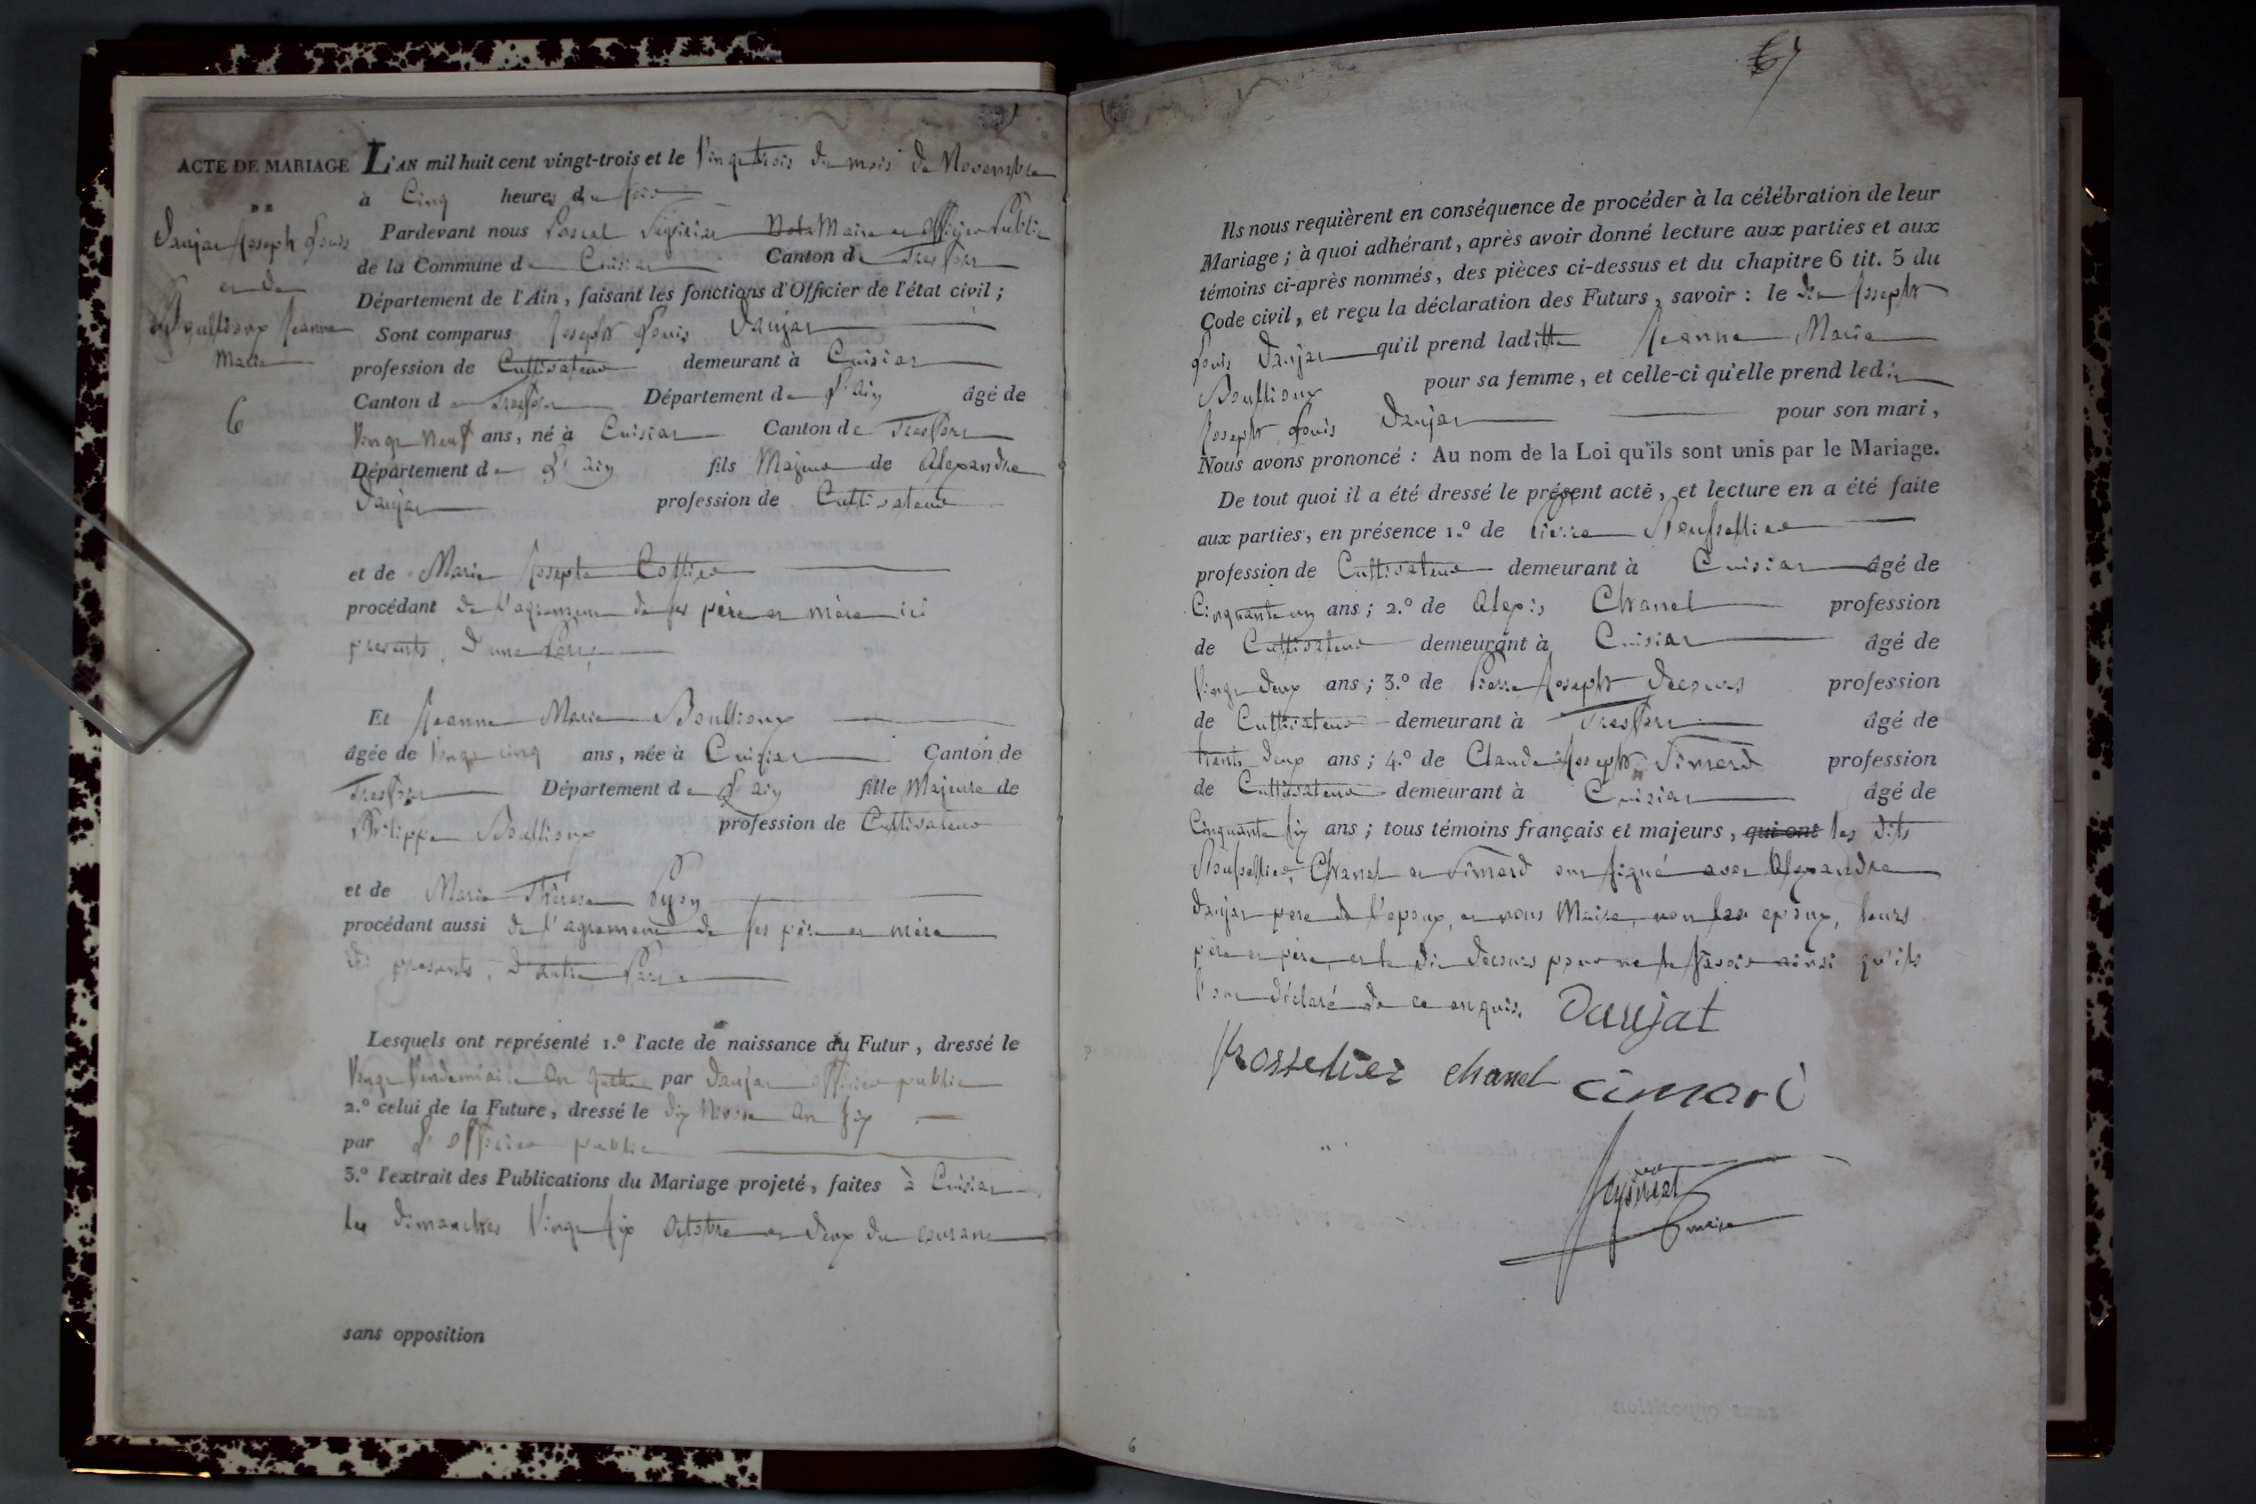 ACTE DE MARIAGE
DE
Daujat Joseph Louis
et de
Boullioux Jeanne
Marie
6
L'AN mil huit cent vingt-trois et le Vingt trois du mois de Novembre
à Cinq heures du soir
Pardevant nous Maire et Officier Public
de la Commune de Cuisiat Canton de Treffort
Département de l'Ain, faisant les fonctions d'Officier de l'état civil;
Sont comparus Joseph Louis Daujat
profession de Cultivateur demeurant à Cuisiat
Canton de Treffort Département de L'Ain âgé de
Vingt Neuf ans, né à Cuisiat Canton de Treffort
Département de L'ain fils Majeur de Alexandre
Daujat profession de Cultivateur
et de Marie Josephte Cottier
procédant de l'agrement de ses père et mère ici
presents, d'une Part,
Et Jeanne Marie Boullioux
âgée de Vingt cinq ans, née à Cuisiat Canton de
Treffort Département de L'ain fille Majeure de
Philippe Boullioux profession de Cultivateur
et de Marie Thérese
procédant aussi de l'agrement de ses père et mère
ici presents, d'autre Part
Lesquels ont représenté 1.° l'acte de naissance du Futur, dressé le
Vingt Vendemiaire an quatre par Daujat officier public
2.° celui de la Future, dressé le dix Nivose an six
par L'officier public
3.° l'extrait des Publications du Mariage projeté, faites à Cuisiat
les dimanches Vingt six Octobre et deux du courant
sans opposition
67
Ils nous requièrent en conséquence de procéder à la célébration de leur
Mariage; à quoi adhérant, après avoir donné lecture aux parties et aux
témoins ci-après nommés, des pièces ci-dessus et du chapitre 6 tit. 5 du
Code civil, et reçu la déclaration des Futurs, savoir: le dit Joseph
Louis Daujat qu'il prend laditte Jeanne Marie
Boullioux pour sa femme, et celle-ci qu'elle prend ledit
Joseph Louis Daujat pour son mari,
Nous avons prononcé: Au nom de la Loi qu'ils sont unis par le Mariage.
De tout quoi il a été dressé le présent acte, et lecture en a été faite
aux parties, en présence 1.° de Pierre Roussellier
profession de Cultivateur demeurant à Cuisiat âgé de
Cinquante un ans; 2.° de Alexis Chanel profession
de Cultivateur demeurant à Cuisiat âgé de
Vingt deux ans; 3.° de Pierre Joseph Decours profession
de Cultivateur demeurant à Treffort âgé de
trente deux ans; 4.° de Claude Joseph Simard profession
de Cultivateur demeurant à Cuisiat âgé de
Cinquante six ans; tous témoins français et majeurs, qui ont les dits
Roussellier, Chanel et Simard ont signé avec Alexandre
Daujat pere de l'epoux, et nous Maire, non les epoux, leurs
père et père, et le dit Decours pour ne le savoir ainsi qu'ils
l'ont déclaré de ce enquis. Daujat
Rosselier chanel cimard
maire
6